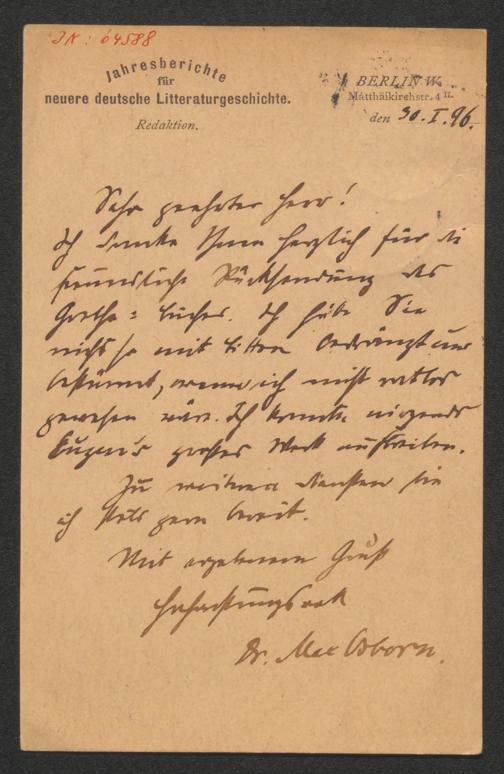 IN: 64588
Jahresberichte
für
neuere deutsche Litteraturgeschichte.
Redaktion.
BERLIN W.
Matthäikirchstr. 4 II.
den 30. I. 96.
Sehr geehrter Herr!
Ich danke Ihnen herzlich für die
freundliche Rücksendung des
Goethe-Buches. Ich hätte Sie
nicht so mit Bitten bedrängt und
bestürmt, wenn ich nicht ratlos
gewesen wäre. Ich konnte nirgends
großes Werk auftreiben.
Zu weiteren Diensten bin
ich stets gern bereit.
Mit ergebenem Gruß
Hochachtungsvoll
Dr. Max Osborn.